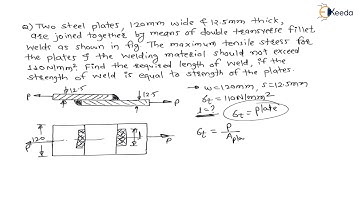 Keeda
Q) Two steel plates, 120mm wide & 12.5mm thick,
are joined together by means of double transverse fillet
welds as shown in fig. The maximum tensile stress for
the plates & the welding material should not exceed
110N/mm². Find the required length of weld, if the
strength of weld is equal to strength of the plates.
→ w=120mm, s=12.5mm
σt = 110N/mm²
l=? plate
σt = P
Apla
12.5
12.5
P
P
120
l
P
P